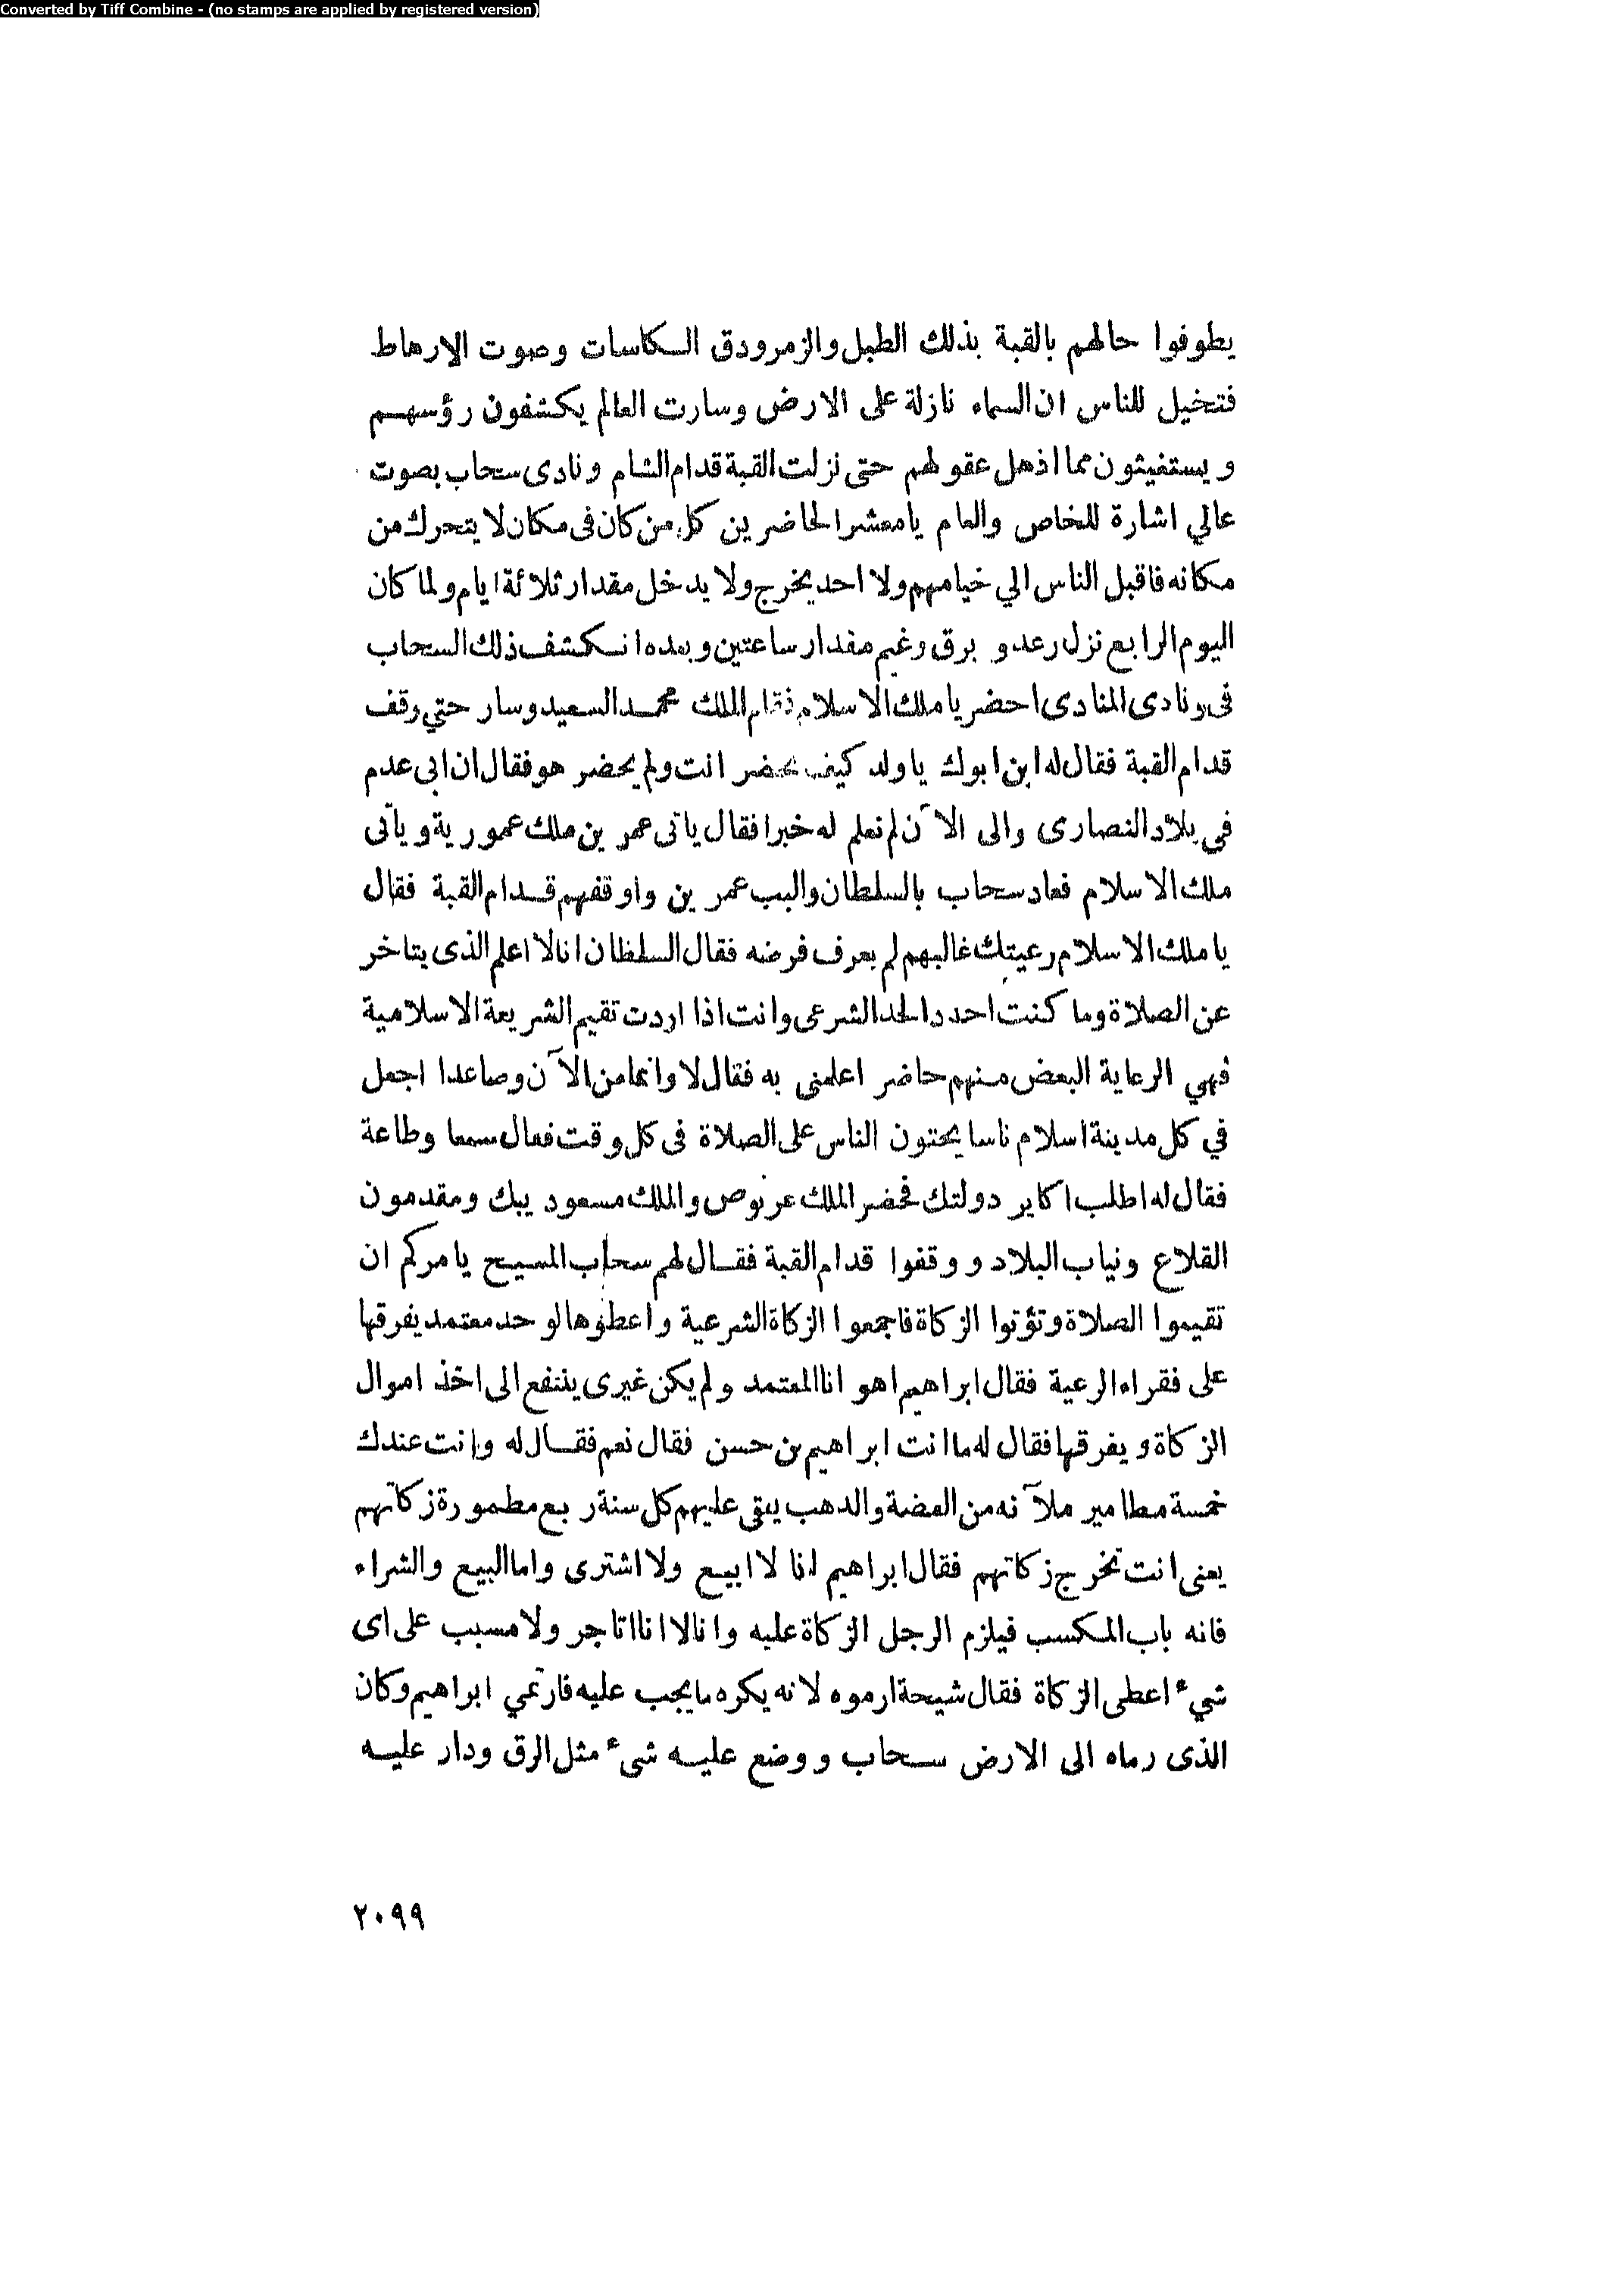 Converted by Tiff Combine - (no stamps are applied by registered version)
يطوفوا حالهم بالقبة بذلك الطبل والزمر ودق الكاسات وصوت الارهاط
فتخيل للناس ان السماء نازلة على الارض وسارت العالم يكشفون رؤسهم
ويستغيثون مما اذهل عقولهم حتى نزلت القبة قدام الشام ونادى سحاب بصوت
عالي اشارة للخاص والعام يا معشر الحاضرين كل من كان فى مكان لا يتحرك من
مكانه فاقبل الناس الي خيامهم ولا احد يخرج ولا يدخل مقدار ثلاثة ايام ولما كان
اليوم الرابع نزل رعد و برق وغيم مقدار ساعتين وبعده انكشف ذلك السحاب
فى ونادى المنادى احضر يا ملك الاسلام فقام الملك محمد السعيد وسار حتي وقف
قدام القبة فقال له ابن ابوك يا ولد كيف يحضر انت ولم يحضر هو فقال ان ابى عدم
في بلاد النصارى والى الآن لم نعلم له خبرا فقال ياتى عمرين ملك عمورية وياتى
ملك الاسلام فعاد سحاب بالسلطان والبب عمرين واوقفهم قدام القبة فقال
يا ملك الاسلام رعيتك غالبهم لم يعرف فرضه فقال السلطان انا لا اعلم الذى يتاخر
عن الصلاة وما كنت احدد الحد الشرعى وانت اذا اردت تقيم الشريعة الاسلامية
فهي الرعاية البعض منهم حاضر اعلمنى به فقال لا وانما من الآن وصاعدا اجعل
في كل مدينة اسلام ناسا يحتون الناس على الصلاة فى كل وقت فقال سمعا وطاعة
فقال له اطلب اكابر دولتك فحضر الملك عرنوص والملك مسعود بيك ومقدمون
القلاع ونياب البلاد ووقفوا قدام القبة فقال لهم سحاب المسيح يا مركم ان
تقيموا الصلاة وتؤتوا الزكاة فاجمعوا الزكاة الشرعية واعطوها لوحد معتمد يفرقها
على فقراء الرعية فقال ابراهيم اهو انا المعتمد ولم يكن غيرى ينتفع الى اخذ اموال
الزكاة ويفرقها فقال له ما انت ابراهيم بن حسن فقال نعم فقال له وانت عندك
خمسة مطامير ملآنه من الفضة والدهب يبقى عليهم كل سنة ربع مطمورة زكاتهم
يعنى انت تخرج زكاتهم فقال ابراهيم انا لا ابيع ولا اشترى واما البيع والشراء
فانه باب المكسب فيلزم الرجل الزكاة عليه وانا لا انا اتاجر ولا مسبب على اى
شيء اعطى الزكاة فقال شيحة ارموه لانه يكره ما يجب عليه فارتمي ابراهيم وكان
الذى رماه الى الارض سحاب ووضع عليه شىء مثل الرق ودار عليه
٢٠٩٩